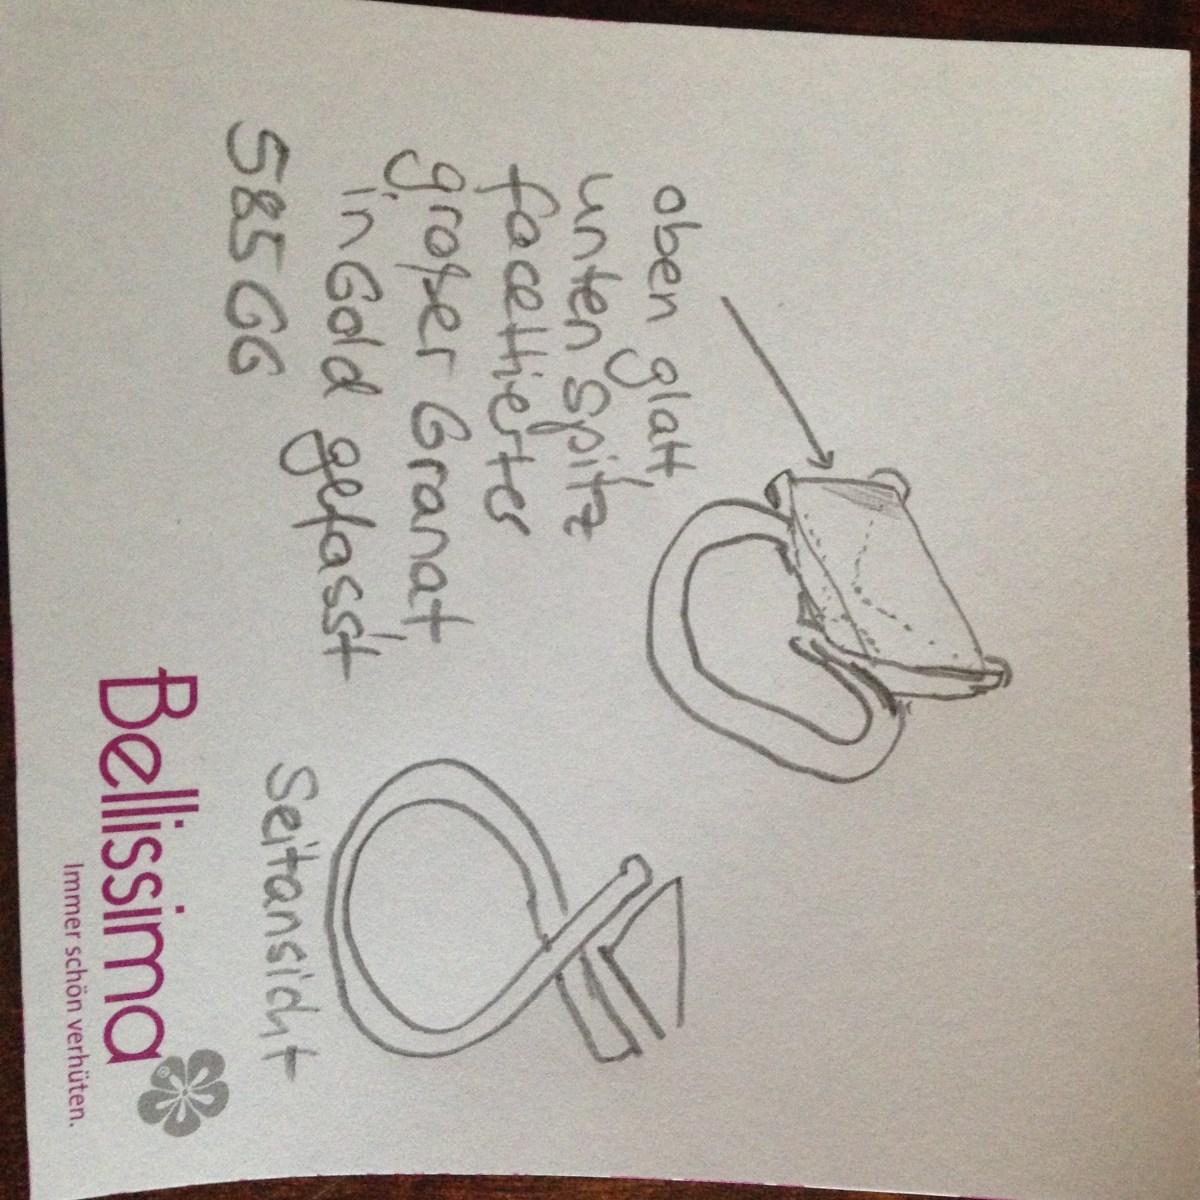 oben glatt
unten spitz
facettierter
großer Granat
in Gold gefasst
585 GG
Seitansicht
Bellissima
®
Immer schön verhüten.